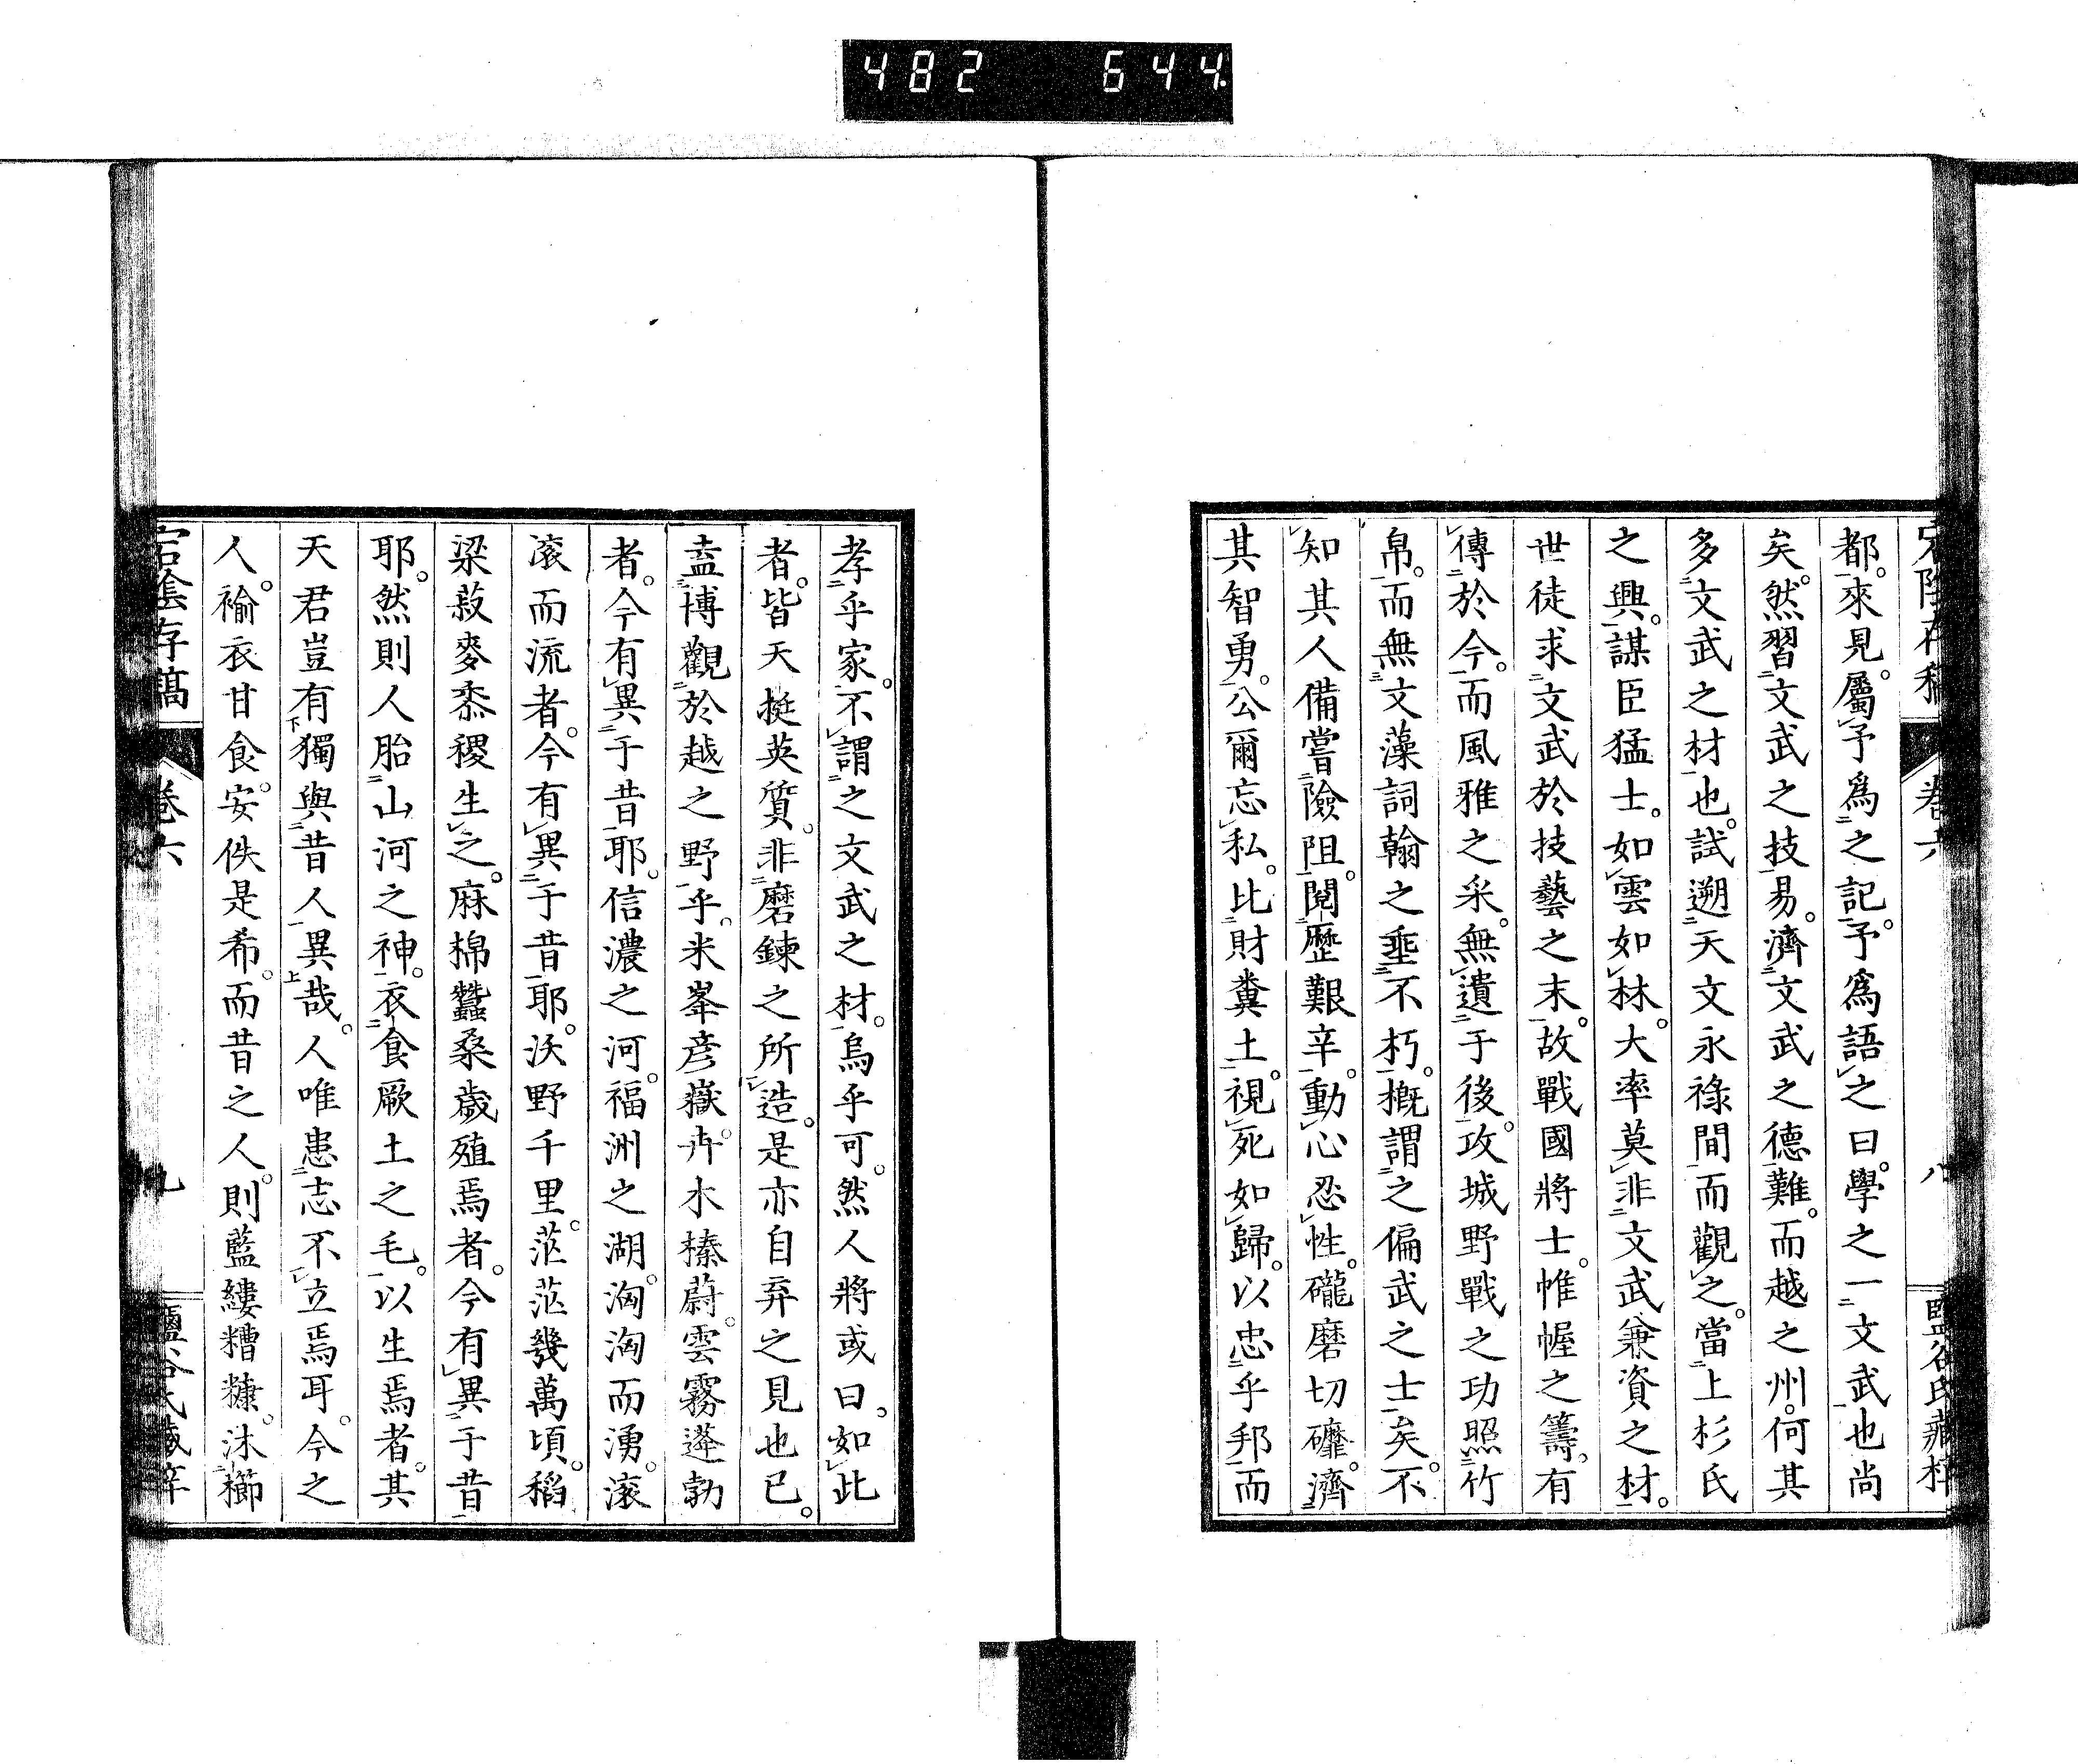 482 644.
宕陰存稿 卷六 八 鹽谷氏藏梓
都。來見。屬予爲之記。予爲語之曰。學之一文武也尚
矣。然習文武之技易。濟文武之德難。而越之州。何其
多文武之材也。試遡天文永祿間而觀之。當上杉氏
之興。謀臣猛士。如雲如林。大率莫非文武兼資之材。
世徒求文武於技藝之末。故戰國將士。帷幄之籌。有
傳於今。而風雅之采。無遺于後。攻城野戰之功照竹
帛。而無文藻詞翰之垂不朽。概謂之偏武之士矣。不
知其人備嘗險阻。閱歷艱辛。動心忍性。礲磨切礳。濟
其智勇。公爾忘私。比財糞土。視死如歸。以忠乎邦而
孝乎家。不謂之文武之材。烏乎可。然人將或曰。如此
者。皆天挺英質。非磨鍊之所造。是亦自弃之見也已。
盍博觀於越之野乎。米峯彦嶽。卉木榛蔚。雲霧蓬勃
者。今有異于昔耶。信濃之河。福洲之湖。洶洶而湧。滚
滚而流者。今有異于昔耶。沃野千里。茫茫幾萬頃。稻
梁菽麥黍稷生之。麻棉蠶桑歲殖焉者。今有異于昔
耶。然則人胎山河之神。衣食厥土之毛。以生焉者。其
天君豈有獨與昔人異哉。人唯患志不立焉耳。今之
人。褕衣甘食。安佚是希。而昔之人。則藍縷糟糠。沐櫛
宕陰存稿 卷六 九 鹽谷氏藏梓